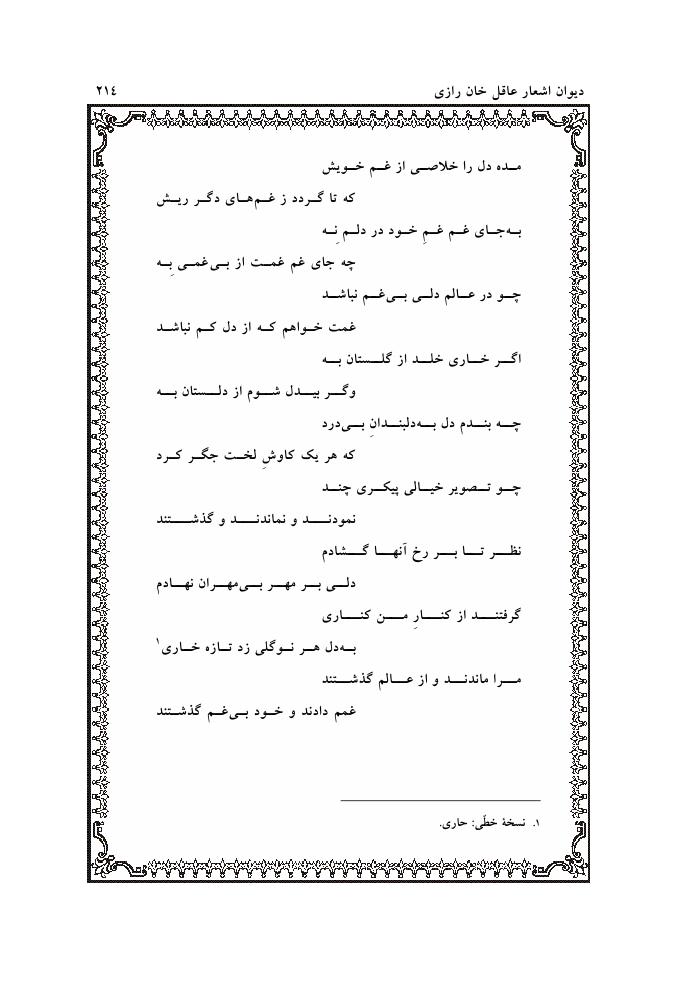 دیوان اشعار عاقل خان رازی ٢١٤
مده دل را خلاصی از غم خویش
که تا گردد ز غم‌های دگر ریش
به‌جای غم غمِ خود در دلم نِه
چه جای غم غمت از بی‌غمی بِه
چو در عالم دلی بی‌غم نباشد
غمت خواهم که از دل کم نباشد
اگر خاری خلد از گلستان به
وگر بیدل شوم از دلستان به
چه بندم دل به‌دلبندانِ بی‌درد
که هر یک کاوشِ لخت جگر کرد
چو تصویر خیالی پیکری چند
نمودند و نماندند و گذشتند
نظر تا بر رخ آنها گشادم
دلی بر مهر بی‌مهران نهادم
گرفتند از کنارِ من کناری
به‌دل هر نوگلی زد تازه خاری١
مرا ماندند و از عالم گذشتند
غمم دادند و خود بی‌غم گذشتند
١. نسخهٔ خطّی: حاری.